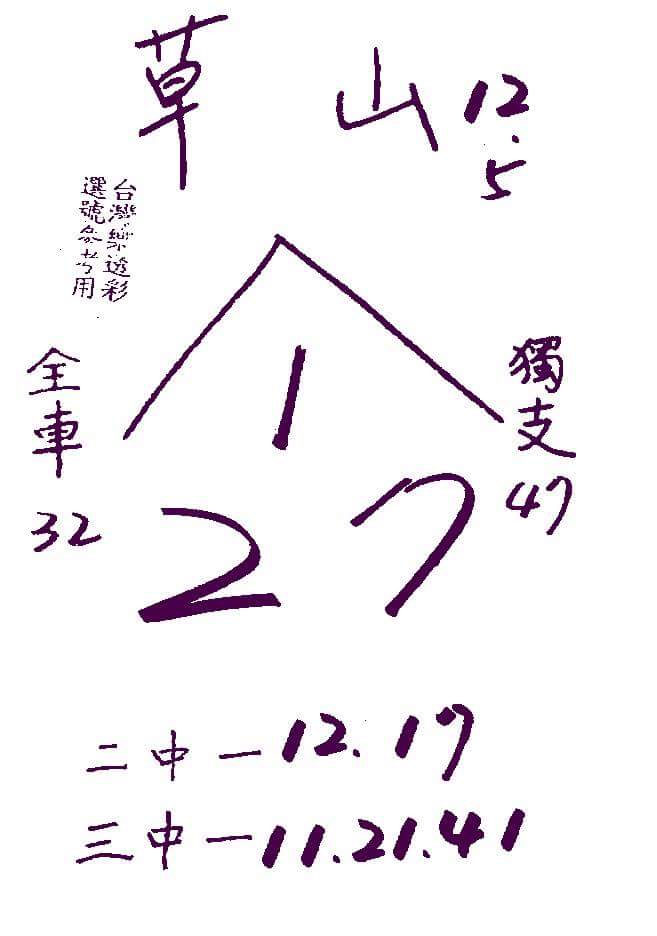 草山 12.5
台灣樂透彩
選號參考用
全車
32
獨支
47
1
2 7
二中一 12.17
三中一 11.21.41